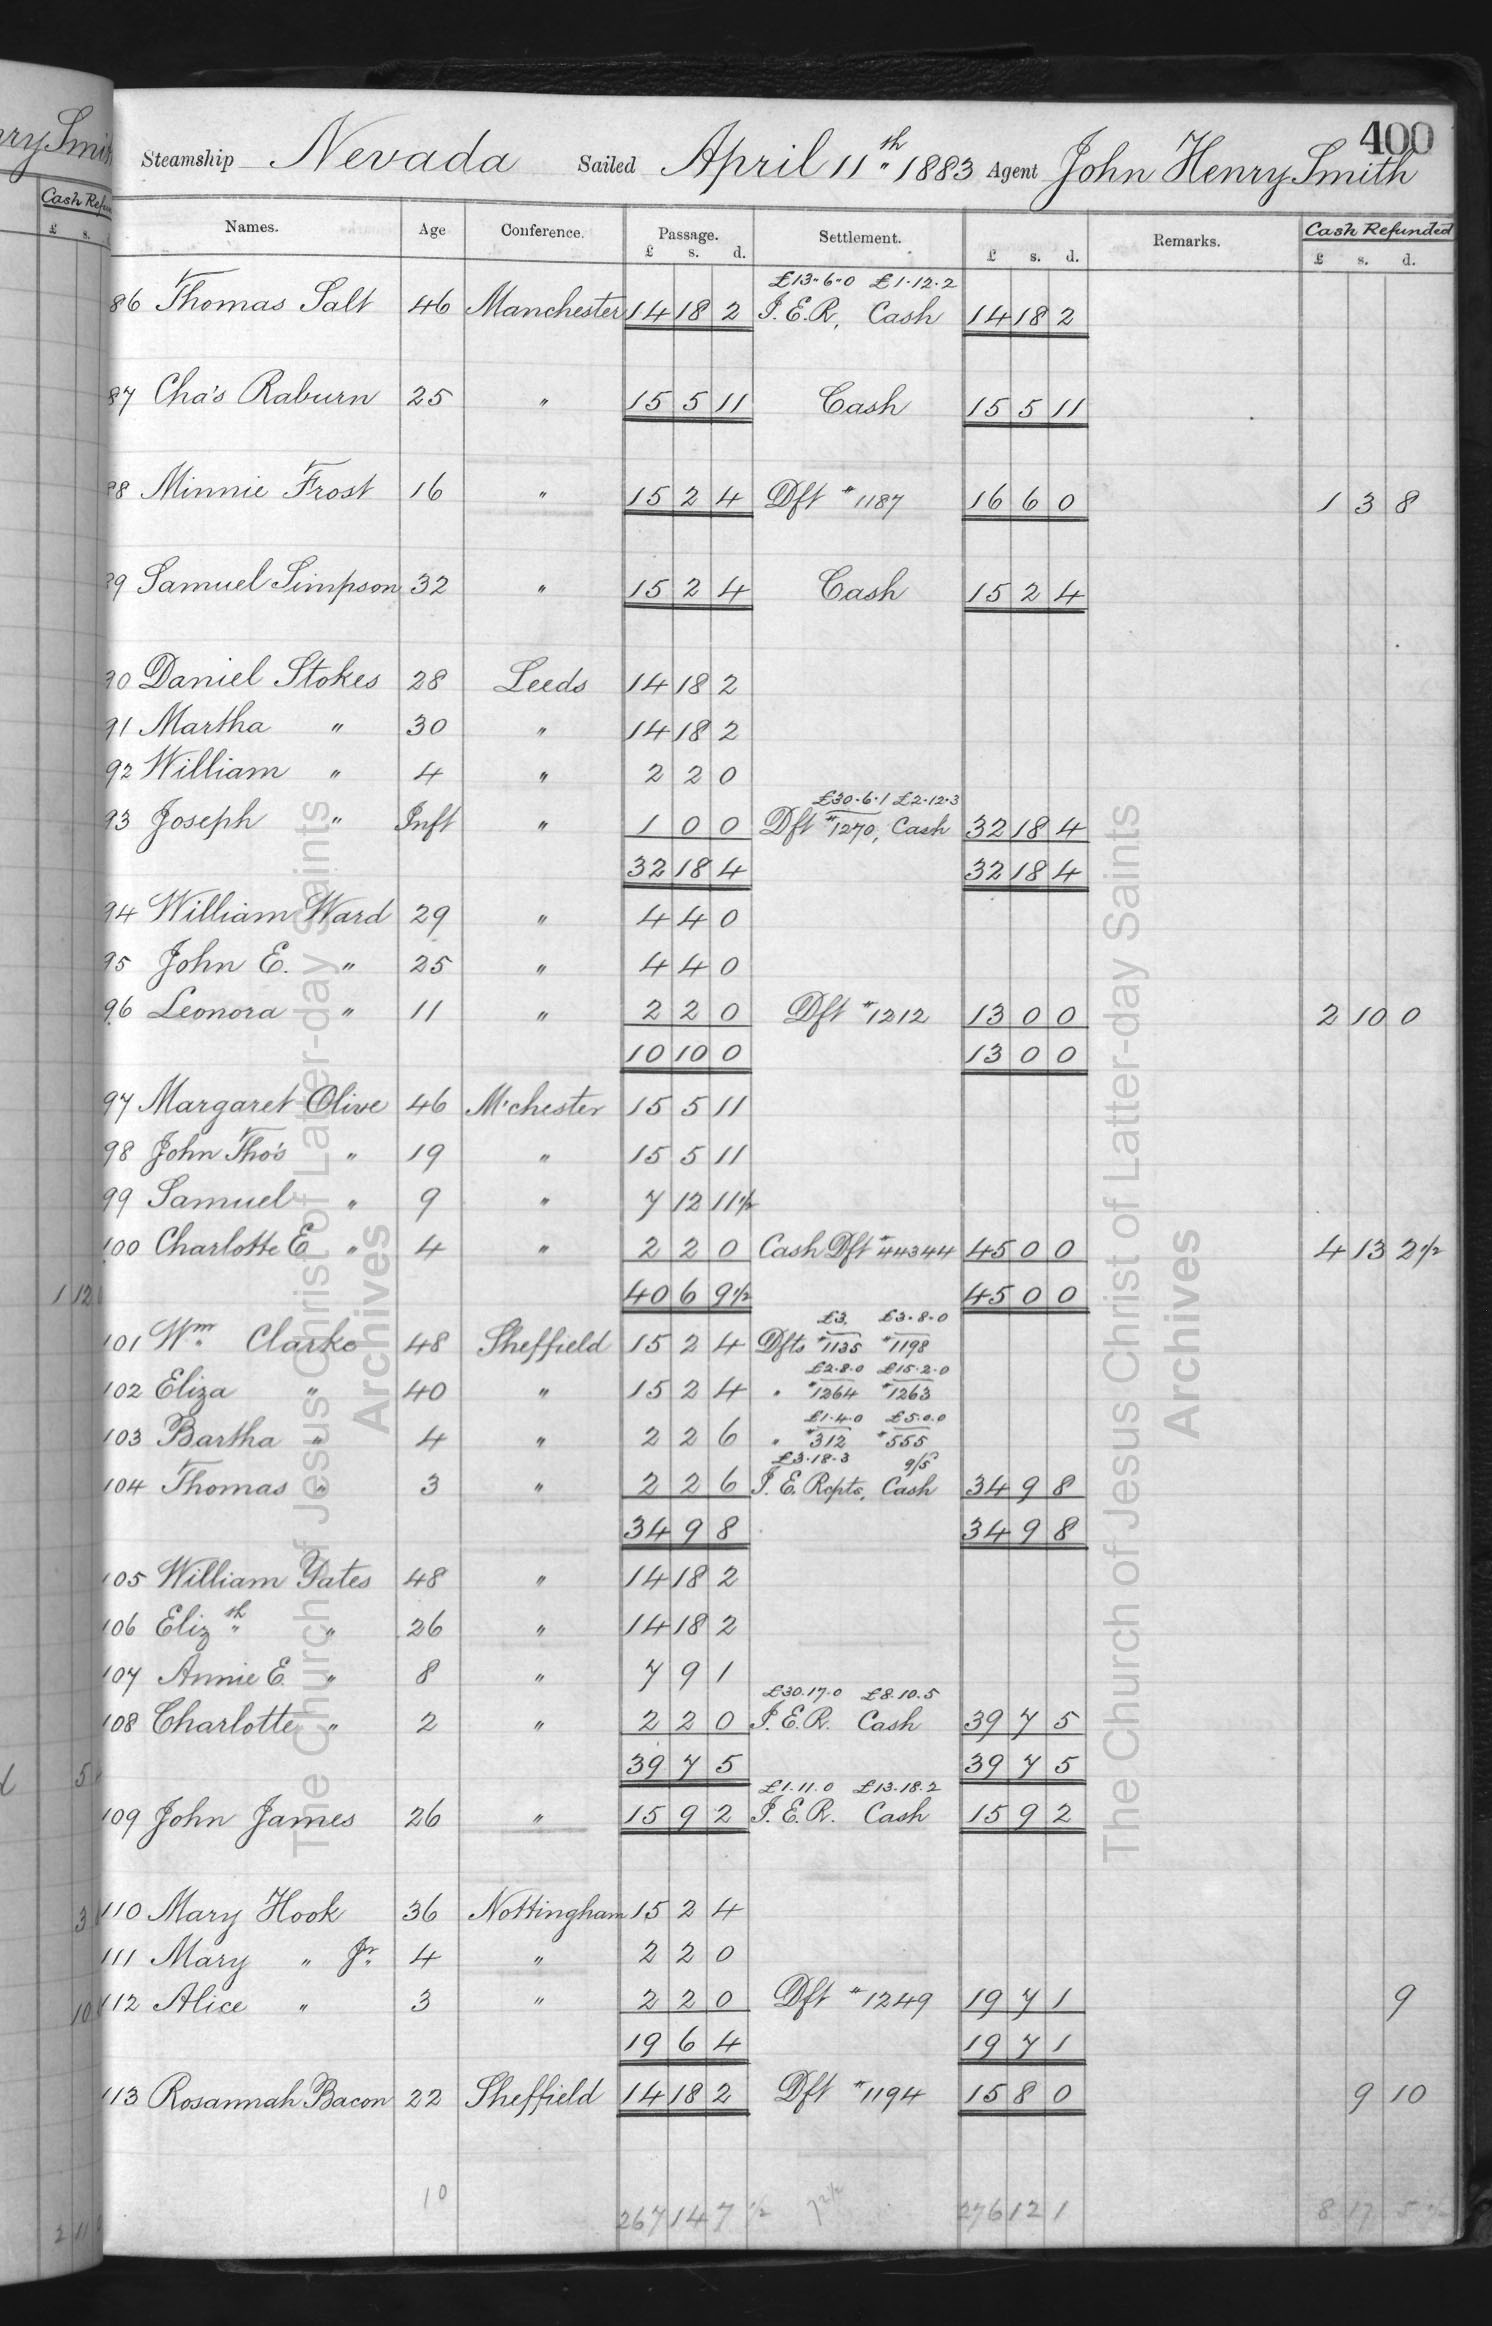 400
Steamship Nevada Sailed April 11th 1883 Agent John Henry Smith
Names. Age Conference. Passage. Settlement. Remarks. Cash Refunded
£ s. d. £ s. d. £ s. d.
£13-6-0 £1-12-2
86 Thomas Salt 46 Manchester 14 18 2 I.E.R, Cash 14 18 2
87 Cha's Raburn 25 " 15 5 11 Cash 15 5 11
88 Minnie Frost 16 " 15 2 4 Dft #1187 16 6 0 1 3 8
89 Samuel Simpson 32 " 15 2 4 Cash 15 2 4
90 Daniel Stokes 28 Leeds 14 18 2
91 Martha " 30 " 14 18 2
92 William " 4 " 2 2 0
£30-6-1 £2-12-3
93 Joseph " Inft " 1 0 0 Dft #1270, Cash 32 18 4
32 18 4 32 18 4
94 William Ward 29 " 4 4 0
95 John E. " 25 " 4 4 0
96 Leonora " 11 " 2 2 0 Dft #1212 13 0 0 2 10 0
10 10 0 13 0 0
97 Margaret Olive 46 M'chester 15 5 11
98 John Tho's " 19 " 15 5 11
99 Samuel " 9 " 7 12 11½
100 Charlotte E " 4 " 2 2 0 Cash Dft #44344 45 0 0 4 13 2½
40 6 9½ 45 0 0
£3. £3-8-0
101 Wm. Clarke 48 Sheffield 15 2 4 Dfts #1135 #1198
£2-8-0 £15-2-0
102 Eliza " 40 " 15 2 4 " #1264 #1263
£1-4-0 £5-0-0
103 Bartha " 4 " 2 2 6 " #312 #555
£3-18-3 9/5
104 Thomas " 3 " 2 2 6 I.E. Rcpts, Cash 34 9 8
34 9 8 34 9 8
105 William Yates 48 " 14 18 2
106 Elizth " 26 " 14 18 2
107 Annie E. " 8 " 7 9 1
£30.17.0 £8.10.5
108 Charlotte " 2 " 2 2 0 I.E.R. Cash 39 7 5
39 7 5 39 7 5
£1.11.0 £13.18.2
109 John James 26 " 15 9 2 I.E.R. Cash 15 9 2
110 Mary Hook 36 Nottingham 15 2 4
111 Mary " Jr. 4 " 2 2 0
112 Alice " 3 " 2 2 0 Dft #1249 19 7 1 9
19 6 4 19 7 1
113 Rosannah Bacon 22 Sheffield 14 18 2 Dft #1194 15 8 0 9 10
10
267 14 7 ½ 276 12 1 8 17 5 ½
The Church of Jesus Christ of Latter-day Saints
Archives
The Church of Jesus Christ of Latter-day Saints
Archives
Cash Refun
£ s.